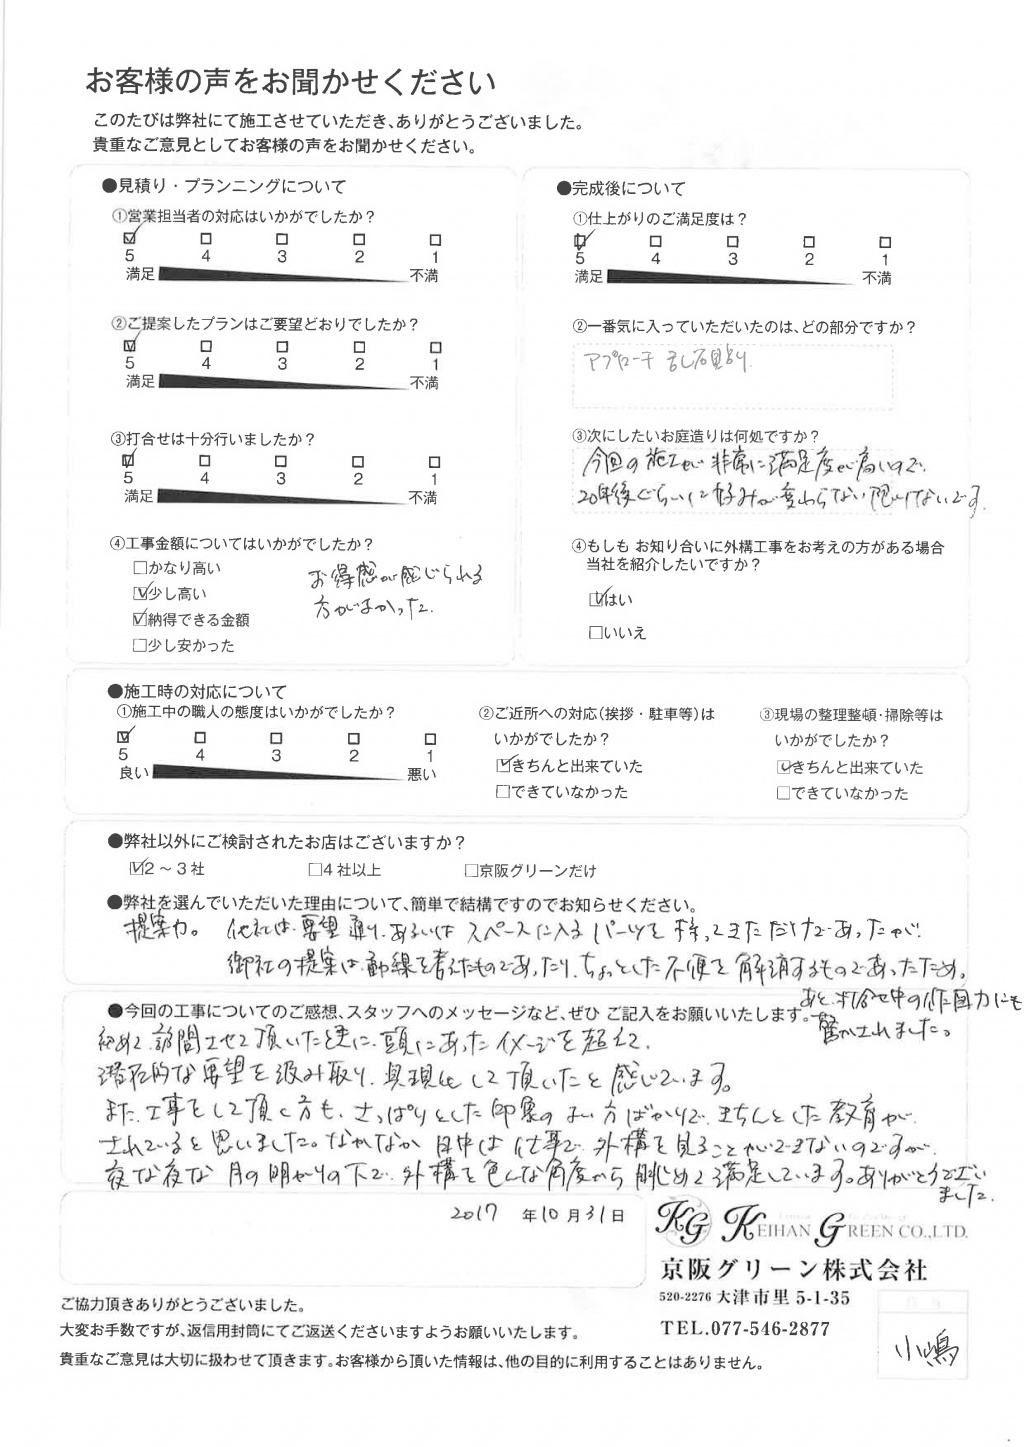 お客様の声をお聞かせください
このたびは弊社にて施工させていただき、ありがとうございました。
貴重なご意見としてお客様の声をお聞かせください。
●見積り・プランニングについて
①営業担当者の対応はいかがでしたか？
5 4 3 2 1
満足 不満
②ご提案したプランはご要望どおりでしたか？
5 4 3 2 1
満足 不満
③打合せは十分行いましたか？
5 4 3 2 1
満足 不満
④工事金額についてはいかがでしたか？
□かなり高い
☑少し高い
☑納得できる金額
□少し安かった
お得感が感じられる
方がよかった。
●完成後について
①仕上がりのご満足度は？
5 4 3 2 1
満足 不満
②一番気に入っていただいたのは、どの部分ですか？
アプローチ 乱し石貼り
③次にしたいお庭造りは何処ですか？
今回の施工が非常に満足度が高いので、
20年後ぐらいに好みが変わらない限りないです。
④もしも お知り合いに外構工事をお考えの方がある場合
当社を紹介したいですか？
☑はい
□いいえ
●施工時の対応について
①施工中の職人の態度はいかがでしたか？
5 4 3 2 1
良い 悪い
②ご近所への対応(挨拶・駐車等)は
いかがでしたか？
☑きちんと出来ていた
□できていなかった
③現場の整理整頓・掃除等は
いかがでしたか？
☑きちんと出来ていた
□できていなかった
●弊社以外にご検討されたお店はございますか？
☑2～3社 □4社以上 □京阪グリーンだけ
●弊社を選んでいただいた理由について、簡単で結構ですのでお知らせください。
提案力。 他社は、要望通り、あるいはスペースに入るパーツを持ってきただけであったが、
御社の提案は、動線を考えたものであったり、ちょっとした不便を解消するものであったため。
あと、打合せ中の作図力にも
驚かされました。
●今回の工事についてのご感想、スタッフへのメッセージなど、ぜひ ご記入をお願いいたします。
初めて訪問させて頂いた時に、頭にあったイメージを超えて、
潜在的な要望を汲み取り、具現化して頂いたと感じています。
また、工事をして頂く方も、さっぱりとした印象のよい方ばかりで、きちんとした教育が
されていると思いました。なかなか日中は仕事で、外構を見ることができないのですが、
夜な夜な月の明かりの下で、外構を色んな角度から眺めて満足しています。ありがとうござい
ました。
2017 年 10 月 31 日
KG KEIHAN GREEN CO.,LTD.
京阪グリーン株式会社
520-2276 大津市里 5-1-35
TEL.077-546-2877
小嶋
ご協力頂きありがとうございました。
大変お手数ですが、返信用封筒にてご返送くださいますようお願いいたします。
貴重なご意見は大切に扱わせて頂きます。お客様から頂いた情報は、他の目的に利用することはありません。